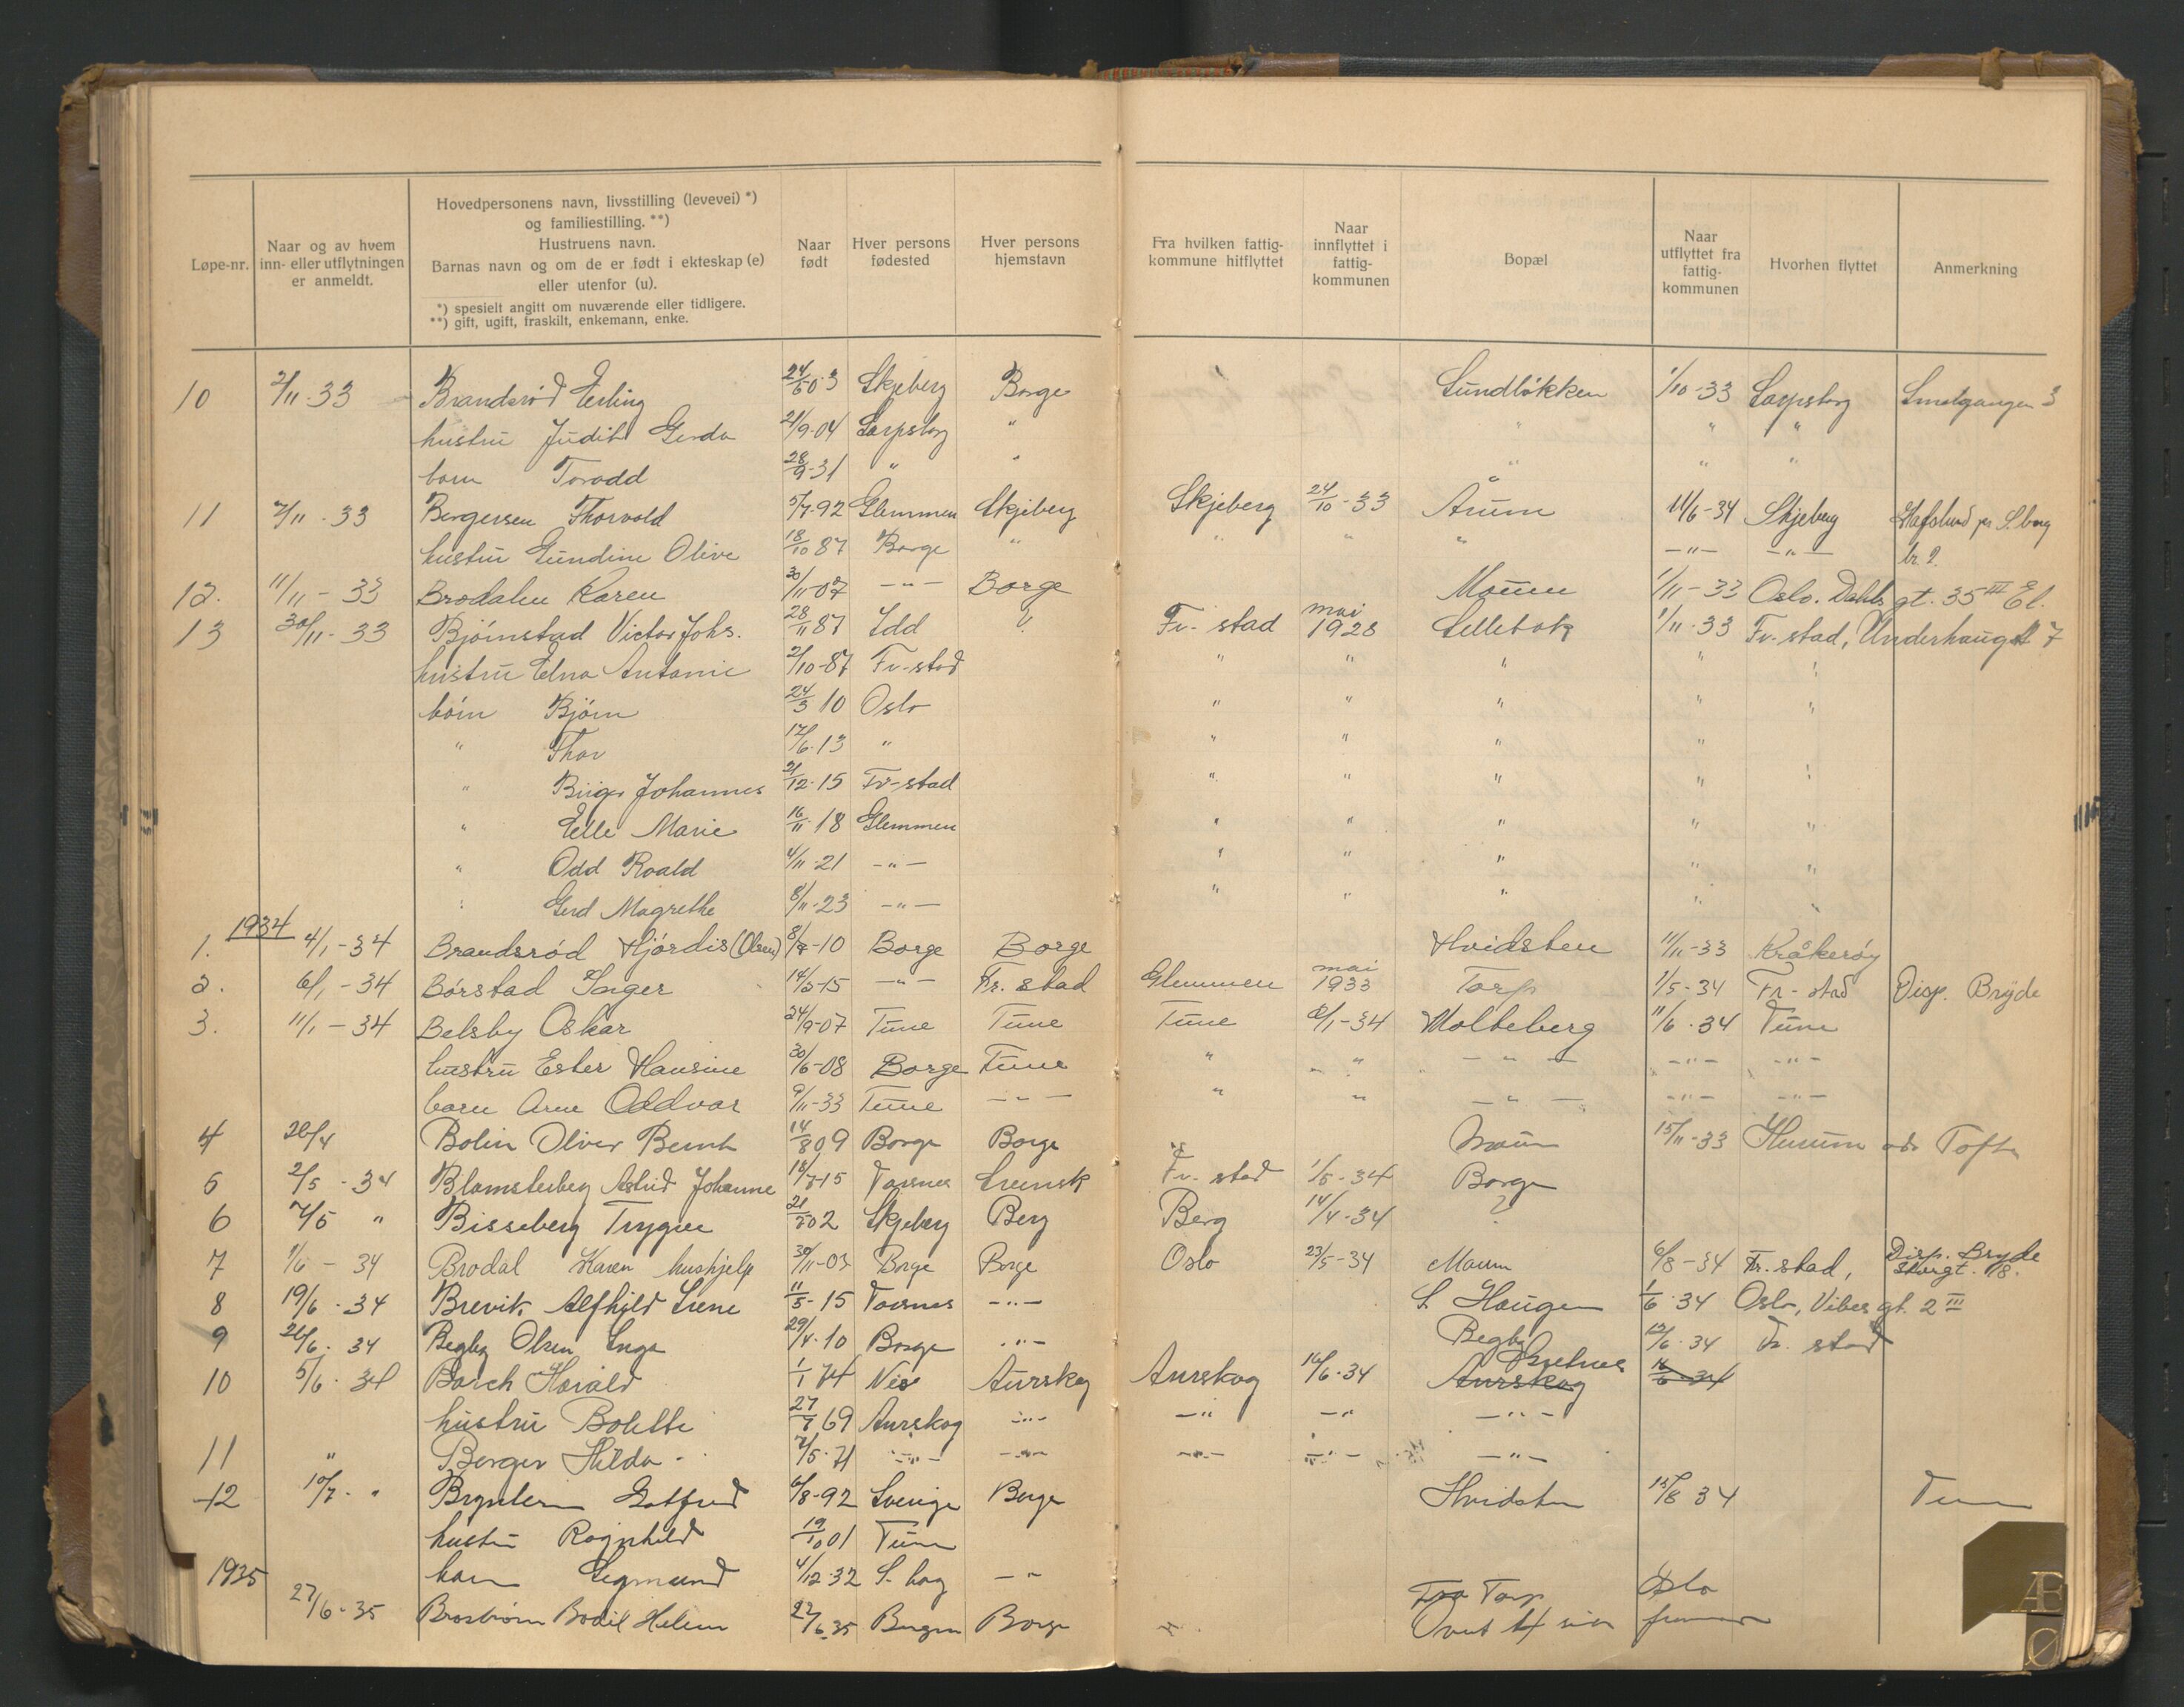 Løpe-nr. | Naar og av hvem inn- eller utflytningen er anmeldt. | Hovedpersonens navn, livsstilling (levevei) *) og familiestilling. **) Hustruens navn. Barnas navn og om de er født i ekteskap (e) eller utenfor (u). *) spesielt angitt om nuværende eller tidligere. **) gift, ugift, fraskilt, enkemann, enke. | Naar født | Hver persons fødested | Hver persons hjemstavn | Fra hvilken fattigkommune hitflyttet | Naar innflyttet i fattigkommunen | Bopæl | Naar utflyttet fra fattigkommunen | Hvorhen flyttet | Anmerkning
10 2/11-33 Brandsrød Erling Skjeberg Borge Sundløkken 1/10-33 Sarpsborg Smalgangen 3
hustru Judith Gerda 21/9-04 Sarpsborg " " " "
barn Torodd 28/9-31 " " " " "
11 7/11-33 Borgersen Thorvald 5/7-92 Glemmen Skjeberg Skjeberg 24/10-33 Årum 11/6-34 Skjeberg Hafslund pr S.borg
hustru Gundine Olive 18/10 87 Borge " " " " -"- -"- br. 2.
12. 11/11-33 Brodalen Karen 30/11-07 -"- Borge Moum 1/11-33 Oslo. Dahls gt. 35 III El.
13 30/11-33 Bjørnstad Victor Johs. 28/11 87 Idd " Fr-stad mai 1928 Lillebok 1/11-33 Fr-stad, Underhaugst 7
hustru Elna Antonie 2/10-87 Fr-stad " " " " "
børn Bjørn 24/3 10 Oslo " " " " "
" Thor 17/6-13 " " " " " "
" Birger Johannes 21/12-15 Fr-stad " " " " "
" Elle Marie 16/11-18 Glemmen " " " " "
" Odd Roald 4/11-21 -"- " " " " "
" Gerd Magrethe 8/11-23 -"- " " " " "
1934
1. 4/1-34 Brandsrød Hjørdis (Olsen) -10 Borge Borge Hvidsten 11/11-33 Kråkerøy
2. 6/1-34 Børstad Inger 14/5-15 -"- Fr. stad Glemmen mai 1933 Torp 1/5-34 Fr-stad Disp. Bryde
3. 11/1-34 Belsby Oskar 24/9-07 Tune Tune Tune 6/1-34 Molteberg 11/6-34 Tune
hustru Ester Hansine 30/6-08 Borge Tune " " -"- -"- -"-
barn Arne Oddvar 9/11-33 Tune -"- " " -"- -"- -"-
4 26/4 Bolin Oliver Bernt 14/8 09 Borge Borge Moum 15/11-33 Hurum Tofte
5 2/5-34 Blomsterberg Astrid Johanne 18/7-15 Torsnes Svensk Fr. stad 1/5-34 Borge
6 7/5 " Bisseberg Trygve 02 Skjeberg Berg Berg 14/4-34 ?
7 1/6-34 Brodal Karen hushjelp 30/11-03 Borge Borge Oslo 23/5-34 Moum 6/8-34 Fr. stad, Disp. Bryde Storgt. 18.
8 19/6-34 Brevik Alfhild Irene 11/5-15 Torsnes -"- S. Haugen 1/6-34 Oslo, Vibes gt. 2 III
9 26/6-34 Begby Olsen Inga 29/4-10 Borge -"- Begby 12/6-34 Fr. stad
10 5/6-34 Borch Harald 1/1 74 Nes Aurskog Aurskog 16/6-34 Aurskog 16/6-34
hustru Bolette 27/7 69 Aurskog -"- -"- -"- -"-
11 " Borger Hilda 7/5-71 -"- -"- -"- -"- -"-
12 10/7-" Gotfred 6/8-92 Sverige Borge Hvidsten 15/8 34 Tune
hustru Ragnhild 19/10 01 Tune
barn Sigmund 4/12-32 S.borg -"-
1935
27/6-35 Brostrøm Bodil Helene 22/6-35 Bergen Borge Fra Torp Oslo